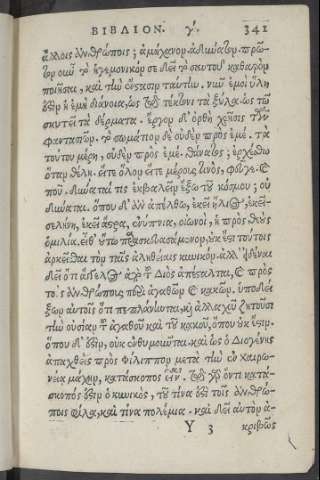 ΒΙΒΛΙΟΝ. γ'. 341
ἄλλοις ἀνθρώποις; ἀμήχανον. ἀδύνατον. πρῶ-
τον οὖν τὸ ἡγεμονικόν σε δεῖ τὸ σαυτοῦ καθαρὸν
ποιῆσαι, καὶ τὴν ἔνστασιν ταύτην. νῦν ἐμοὶ ὕλη
ἐστὶν ἡ ἐμὴ διάνοια, ὡς τῷ τέκτονι τὰ ξύλα. ὡς τῷ
σκυτεῖ τὰ δέρματα. ἔργον δ' ὀρθὴ χρῆσις τῶν
φαντασιῶν. τὸ σωμάτιον δὲ οὐδὲν πρὸς ἐμέ. τὰ
τούτου μέρη, οὐδὲν πρὸς ἐμέ. θάνατος; ἐρχέσθω
ὅταν θέλῃ. εἴτε ὅλου εἴτε μέρους τινός, φεῦγε. καὶ
ποῦ. δύναταί τις ἐκβαλεῖν ἔξω τοῦ κόσμου; οὐ
δύναται. ὅπου δ' ἂν ἀπέλθω, ἐκεῖ ἥλιος, ἐκεῖ
σελήνη, ἐκεῖ ἄστρα, ἐνύπνια, οἰωνοί, ἡ πρὸς θεοὺς
ὁμιλία. εἶθ' οὕτω παρασκευασάμενον, οὐκ ἔστι τούτοις
ἀρκεῖσθαι τὸν ταῖς ἀληθείαις κυνικόν. ἀλλ' εἰδέναι
δεῖ ὅτι ἄγγελος ἀπὸ τοῦ Διὸς ἀπέσταλται, καὶ πρὸς
τοὺς ἀνθρώπους περὶ ἀγαθῶν καὶ κακῶν. ὑποδεί
ξων αὐτοῖς ὅτι πεπλάνηνται, καὶ ἀλλαχοῦ ζητοῦσι
τὴν οὐσίαν τοῦ ἀγαθοῦ καὶ τοῦ κακοῦ, ὅπου οὐκ ἔστιν.
ὅπου δ' ἐστὶν, οὐκ ἐνθυμοῦνται. καὶ ὡς ὁ Διογένης
ἀπαχθεὶς πρὸς Φίλιππον μετὰ τὴν ἐν Χαιρω-
νείᾳ μάχην, κατάσκοπος εἶναι. τῷ γὰρ ὄντι κατά-
σκοπός ἐστιν ὁ κυνικὸς, τοῦ τίνα ἐστὶ τοῖς ἀνθρώ-
ποις φίλα, καὶ τίνα πολέμια. καὶ δεῖ αὐτὸν ἀ-
Y 3 κριβῶς